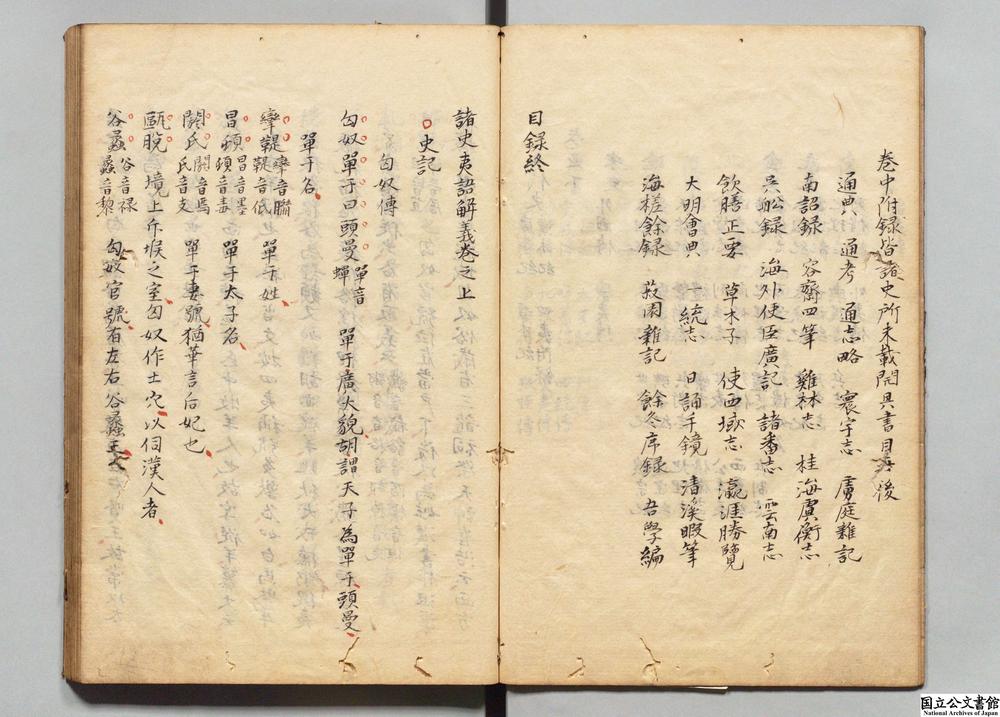 巻中附録皆諸史所未載開具書目于後
通典 通考 通志略 寰宇志 虜庭雜記
南詔録 容齋四筆 雞林志 桂海虞衡志
吳船録 海外使臣廣記 諸番志 雲南志
飲膳正要 草木子 使西域志 瀛涯勝覽
大明會典 一統志 日誦千鏡 清溪暇筆
海槎餘録 菽園雜記 餘冬序録 吾學編
目録終
諸史夷語解義巻之上
史記
匈奴傳
匈奴單于曰頭曼單音蟬 單于廣大貌胡謂天子為單于頭曼
單于名
攣鞮攣音臠鞮音低 單于姓
冒頓冒音墨頓音毒 單于太子名
閼氏閼音焉氏音支 單于妻號猶華言后妃也
甌脱境上斥堠之室匈奴作土穴以伺漢人者
谷蠡谷音禄蠡音黎 匈奴官號有左右谷蠡王
国立公文書館
National Archives of Japan